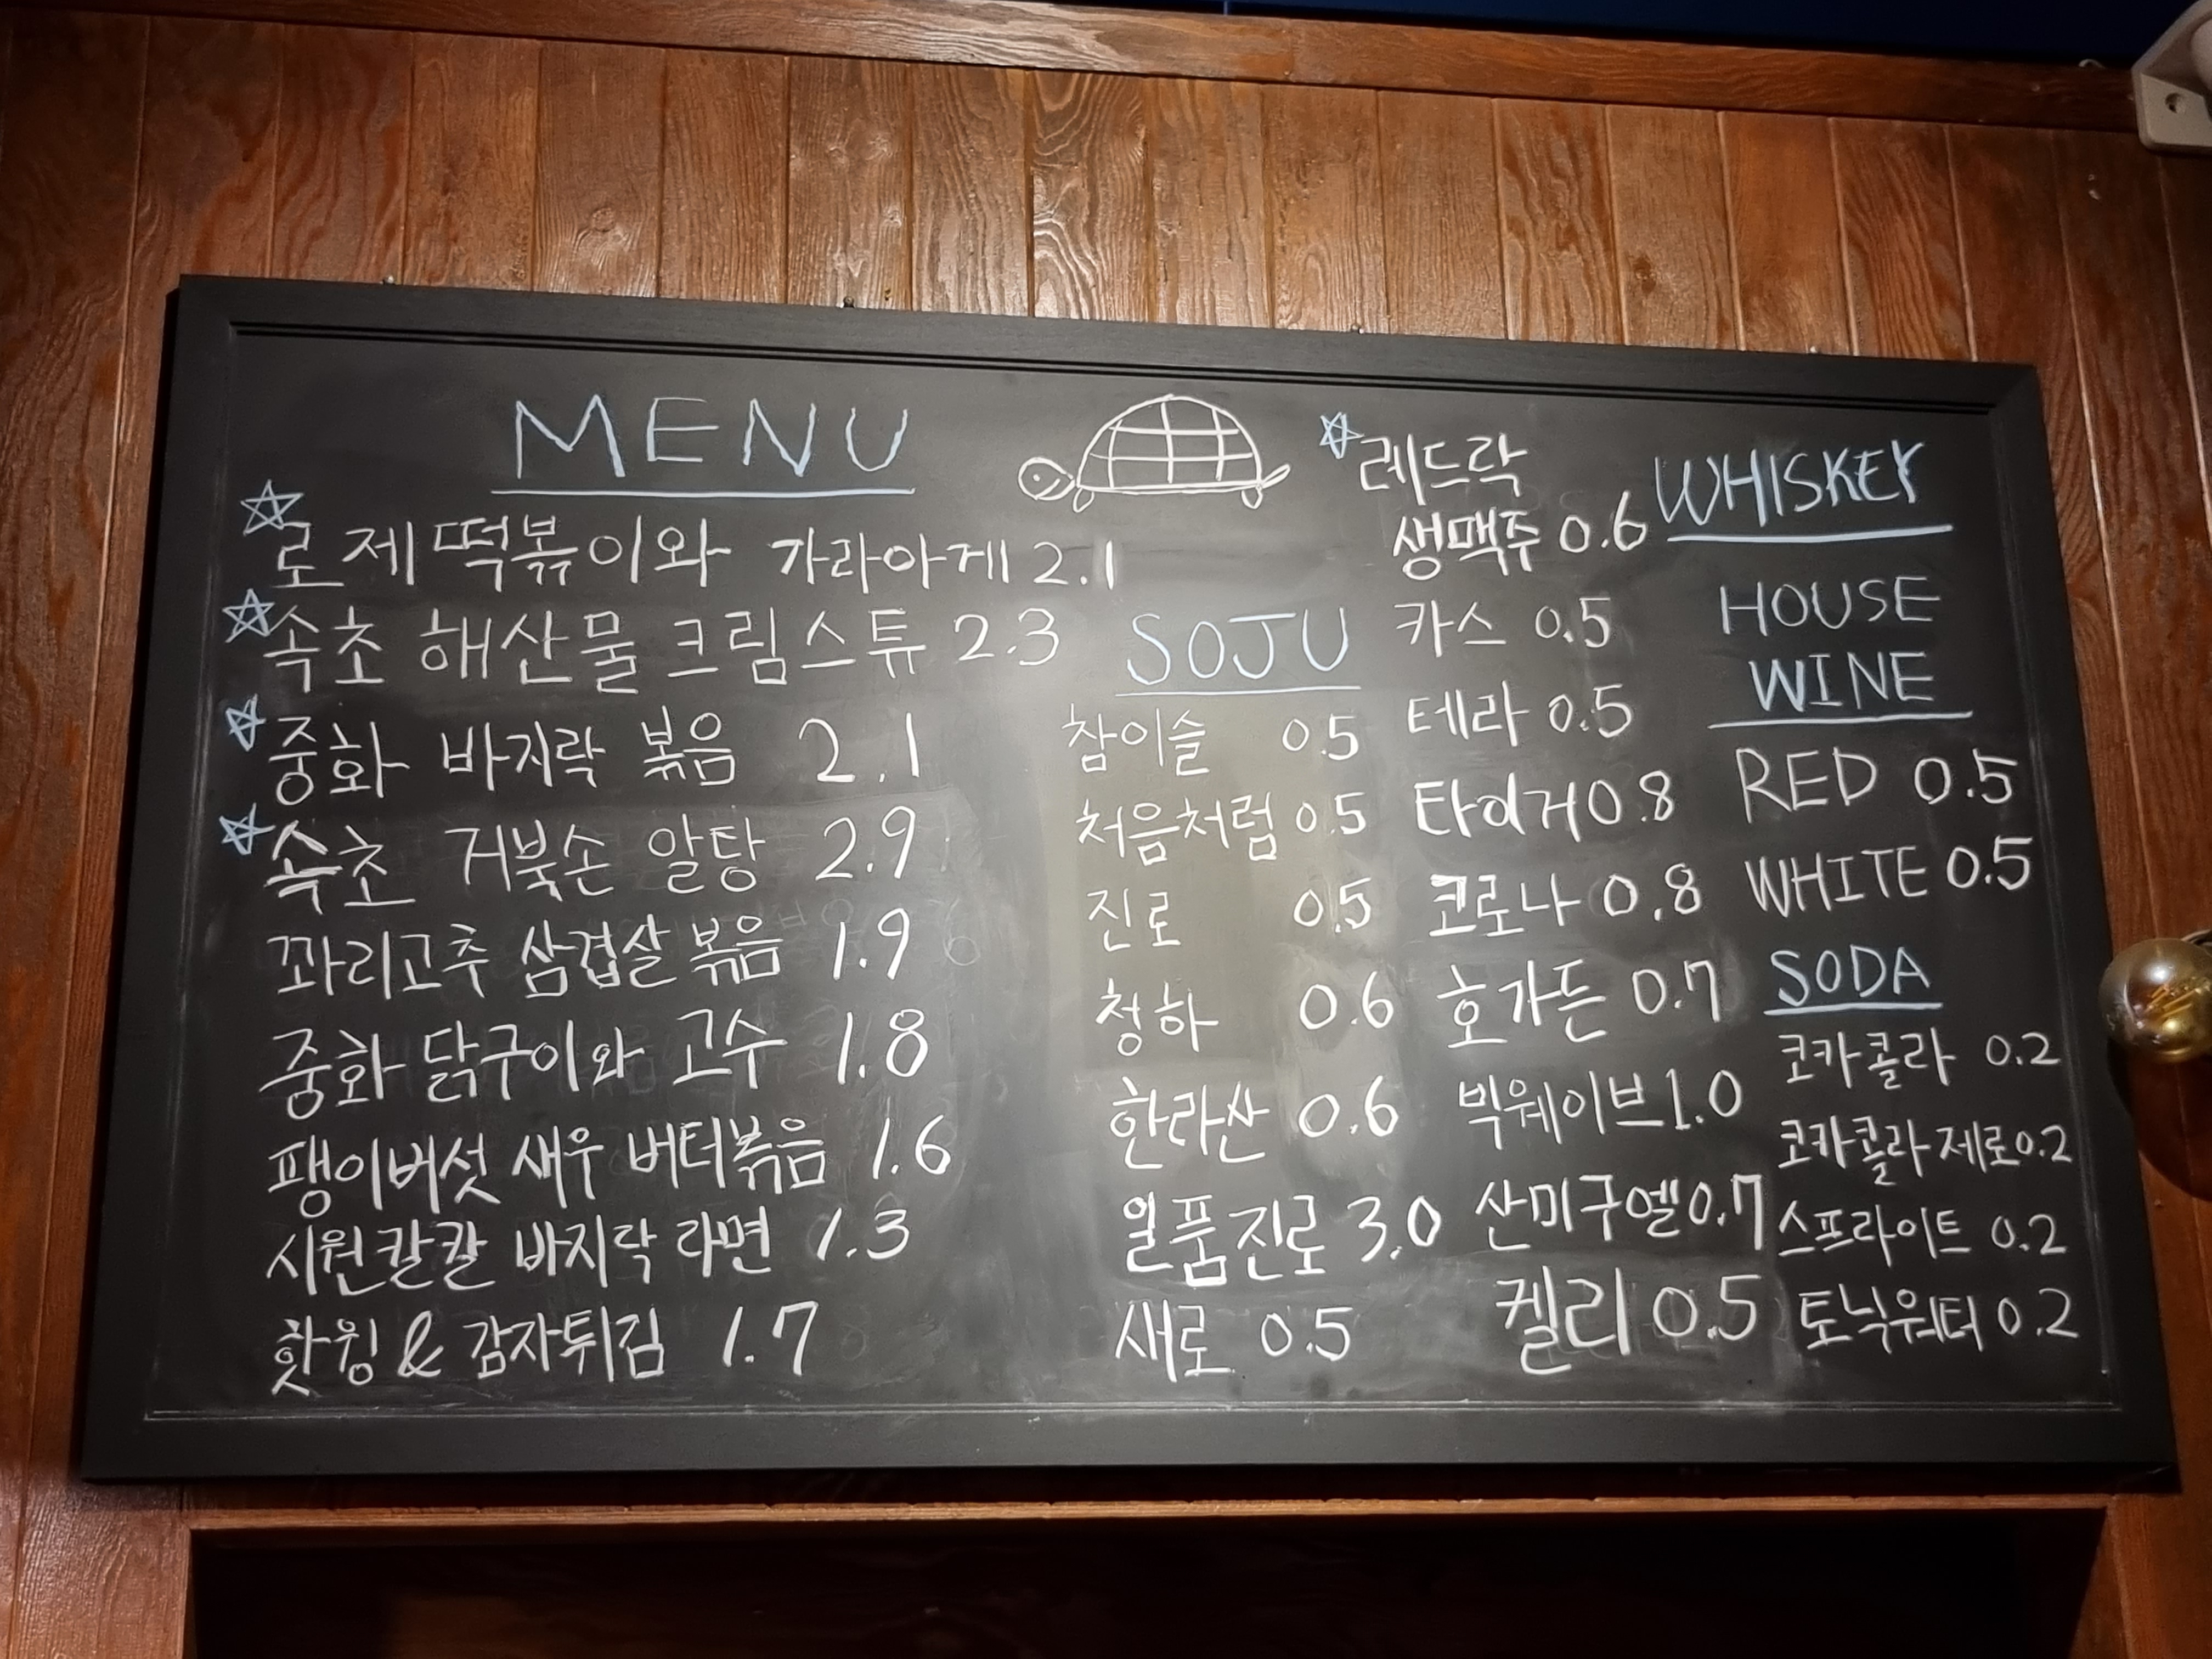 MENU
로제떡볶이와 가라아게 2.1
속초 해산물 크림스튜 2.3
중화 바지락 볶음 2.1
속초 거북손 알탕 2.9
꽈리고추 삼겹살볶음 1.9
중화 닭구이와 고수 1.8
팽이버섯 새우 버터볶음 1.6
시원칼칼 바지락 라면 1.3
핫윙 & 감자튀김 1.7
SOJU
참이슬 0.5
처음처럼 0.5
진로 0.5
청하 0.6
한라산 0.6
일품진로 3.0
새로 0.5
레드락
생맥주 0.6
카스 0.5
테라 0.5
타이거 0.8
코로나 0.8
호가든 0.7
빅웨이브 1.0
산미구엘 0.7
켈리 0.5
WHISKEY
HOUSE
WINE
RED 0.5
WHITE 0.5
SODA
코카콜라 0.2
코카콜라 제로 0.2
스프라이트 0.2
토닉워터 0.2